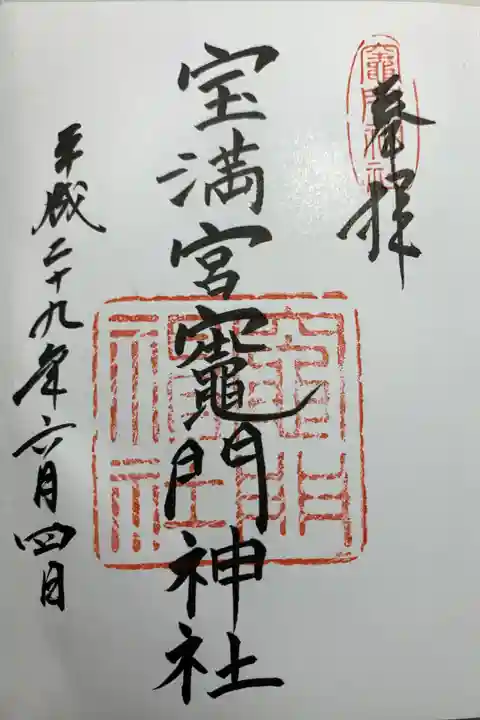 奉拝
竈門神社
宝満宮竈門神社
竈門神社
平成二十九年六月四日